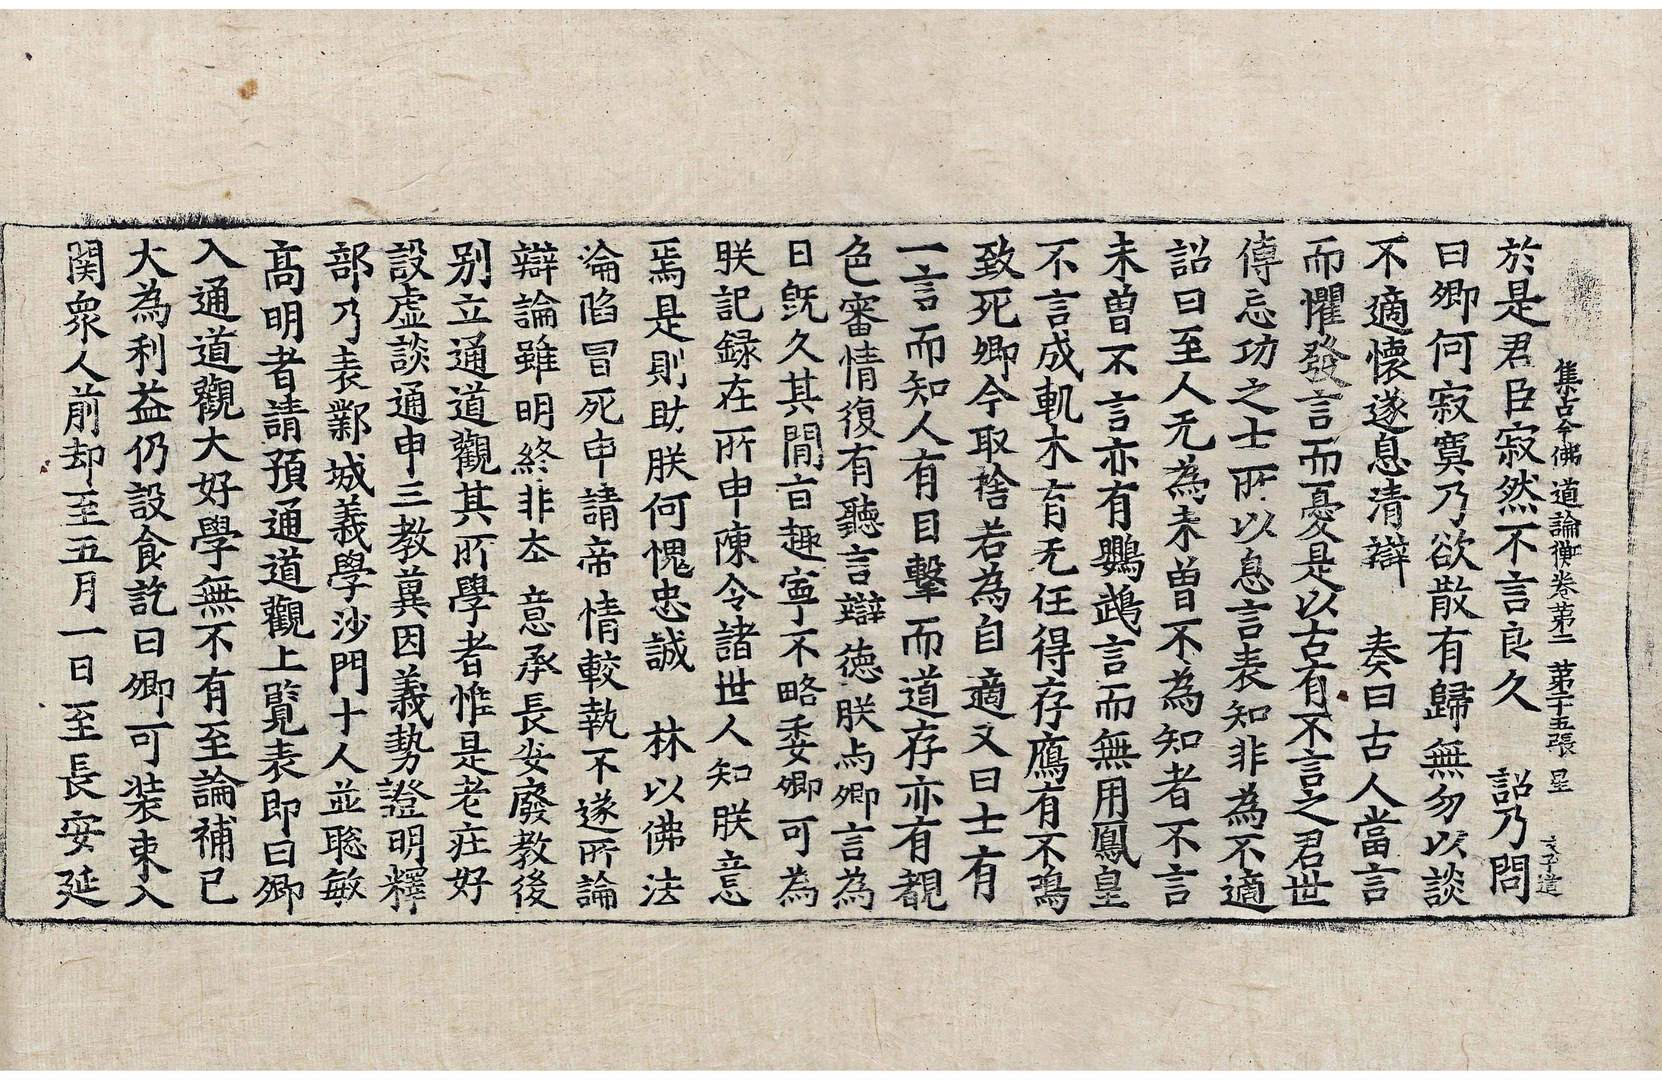 集古今佛道論衡卷第二 第二十五張 星
於是君臣寂然不言良久 詔乃問
曰卿何寂寞乃欲散有歸無勿以談
不適懷遂息清辯 奏曰古人當言
而懼發言而憂是以古有不言之君世
傳忘功之士所以息言表知非為不適
詔曰至人无為未曾不為知者不言
未曾不言亦有鸚鵡言而無用鳳皇
不言成軌木有无任得存鴈有不鳴
致死卿今取捨若為自適又曰士有
一言而知人有目擊而道存亦有覩
色審情復有聽言辯德朕与卿言為
日旣久其閒旨趣寧不略委卿可為
朕記録在所申陳令諸世人知朕意
焉是則助朕何愧忠誠 林以佛法
淪陷冒死申請帝情較執不遂所論
辯論雖明終非本意承長安廢教後
别立通道觀其所學者惟是老莊好
設虛談通申三教冀因義勢證明釋
部乃表鄴城義學沙門十人並聡敏
高明者請預通道觀上覽表即曰卿
入通道觀大好學無不有至論補已
大為利益仍設食訖曰卿可裝束入
関衆人前却至五月一日至長安延